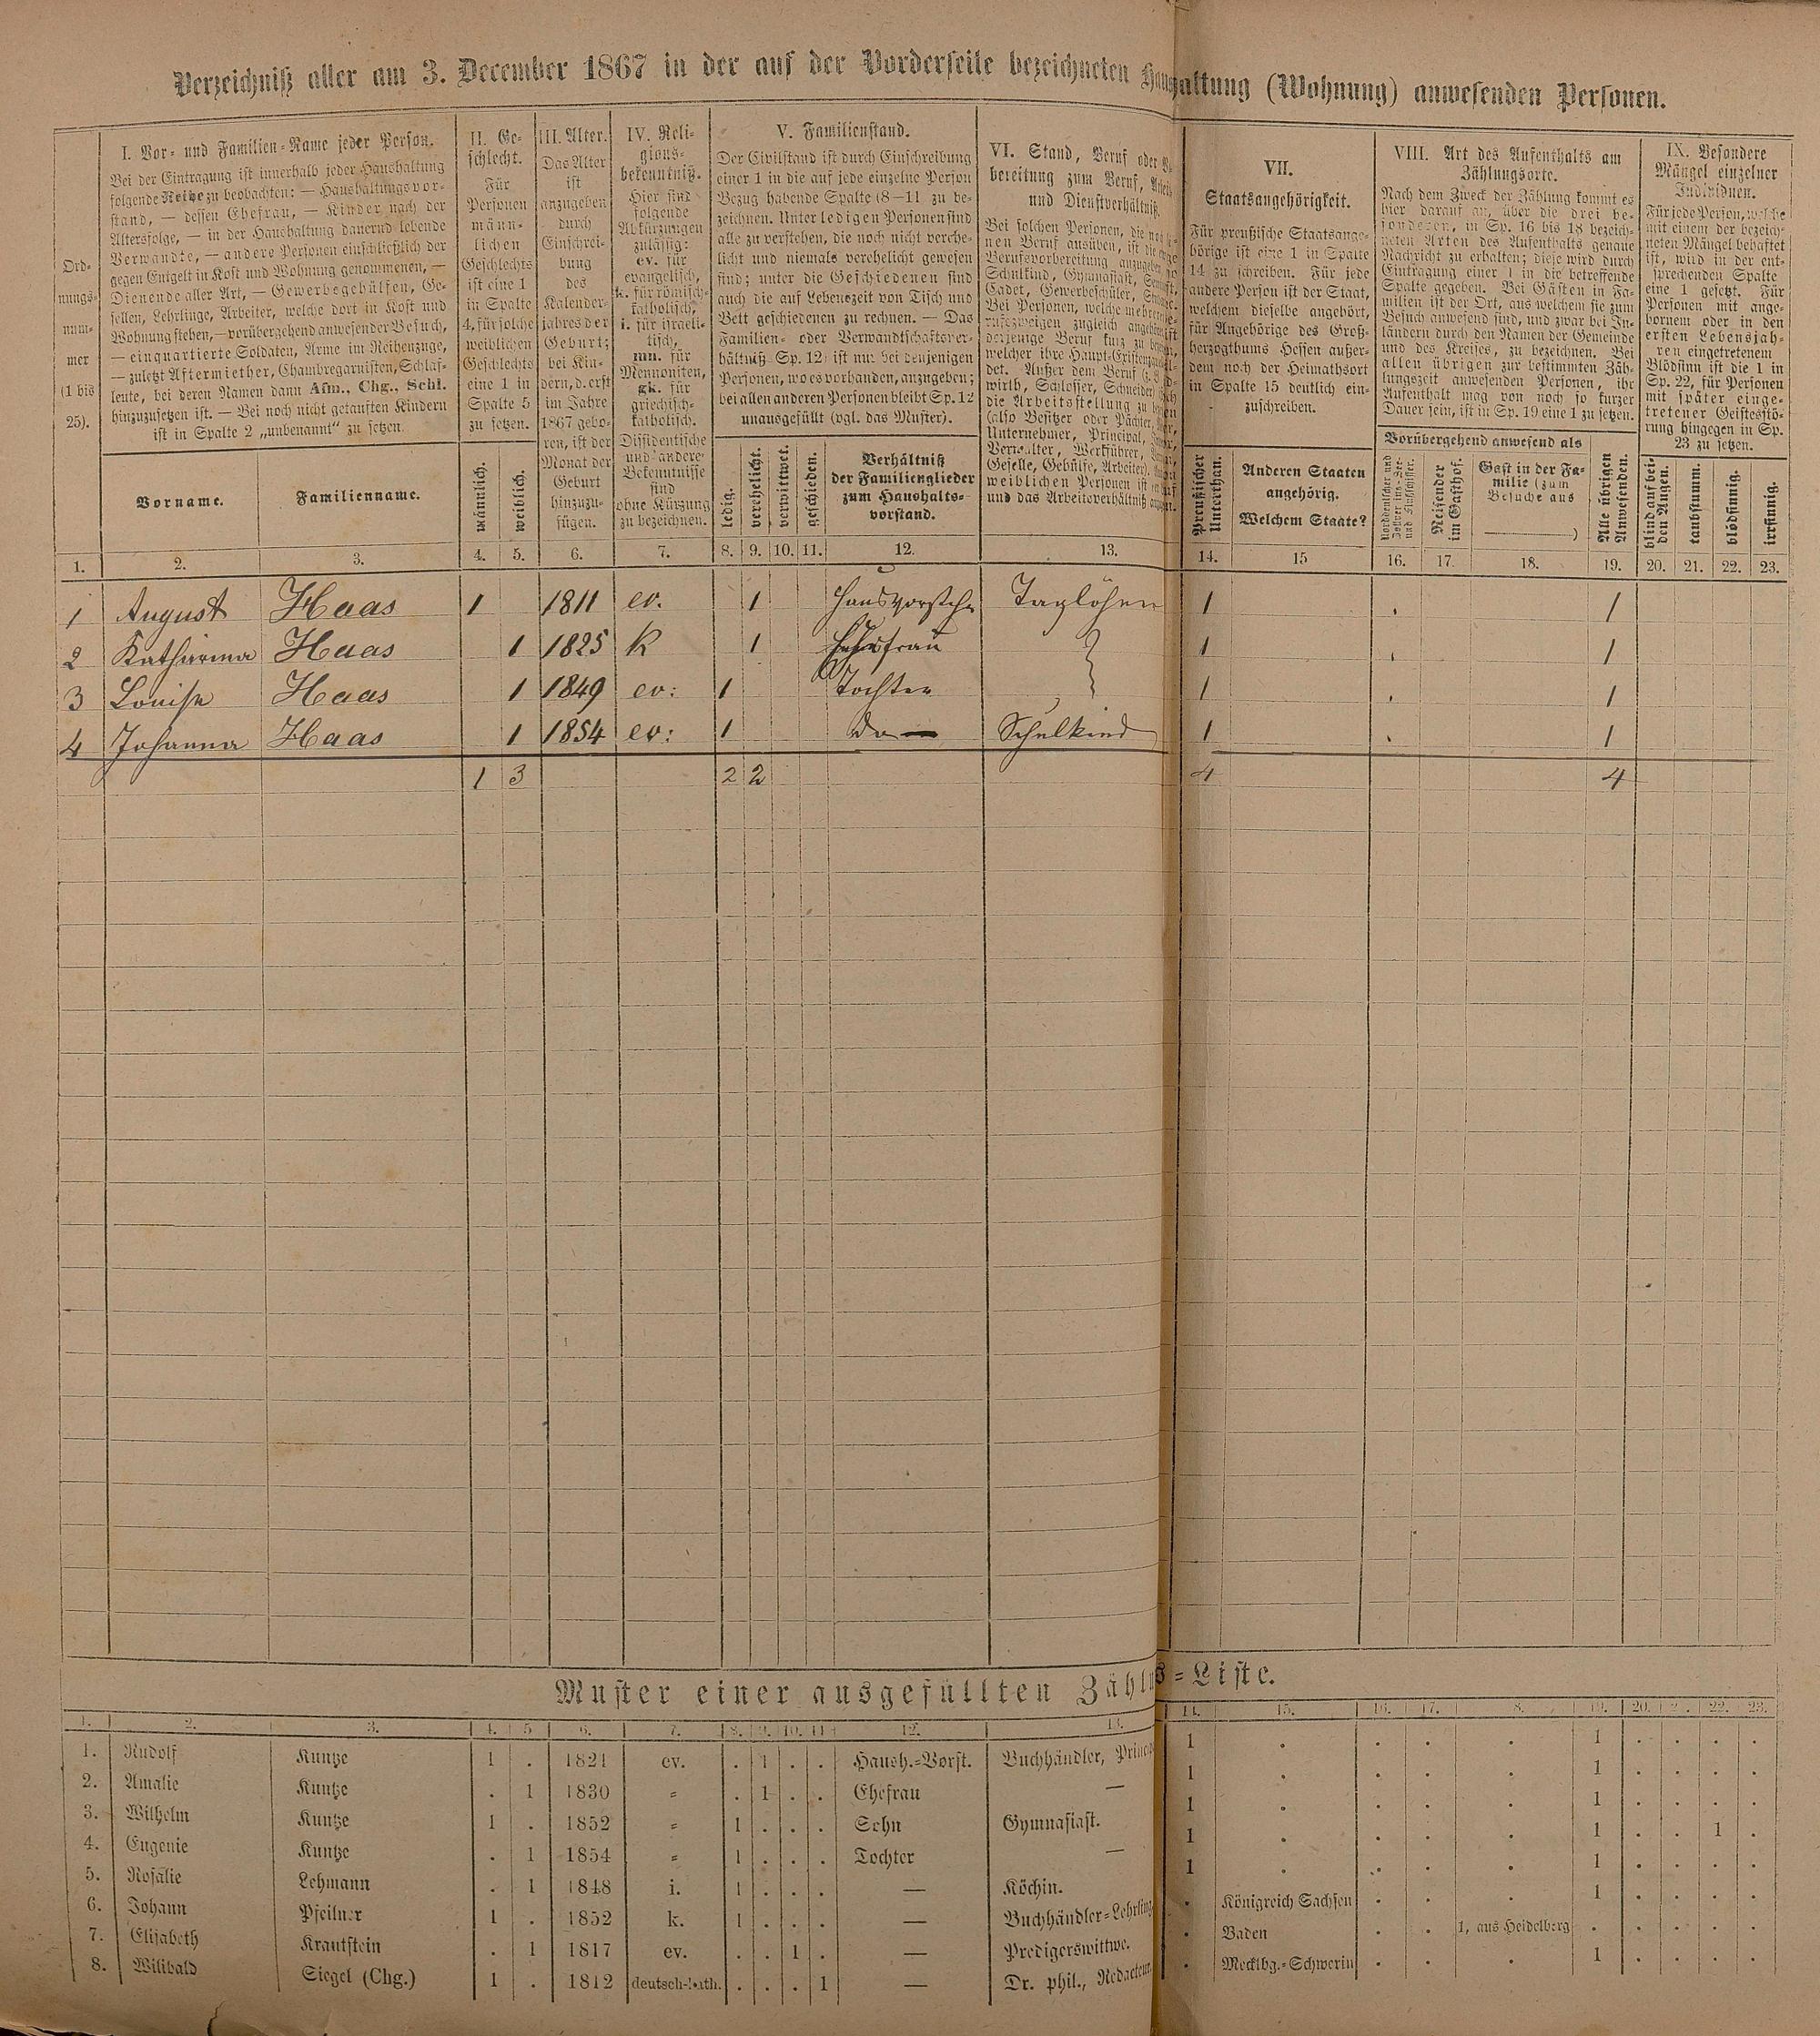 Verzeichniß aller am 3. December 1867 in der auf der Vorderseite bezeichneten Haushaltung (Wohnung) anwesenden Personen.
Ord-
nungs-
num-
mer
(1 bis
25).
I. Vor- und Familien-Name jeder Person.
Bei der Eintragung ist innerhalb jeder Haushaltung
folgende Reihe zu beobachten: — Haushaltungsvor-
stand, — dessen Ehefrau, — Kinder nach der
Altersfolge, — in der Haushaltung dauernd lebende
Verwandte, — andere Personen einschließlich der
gegen Entgelt in Kost und Wohnung genommenen, —
Dienende aller Art, — Gewerbsgehülfen, Ge-
sellen, Lehrlinge, Arbeiter, welche dort in Kost und
Wohnung stehen, — vorübergehend anwesender Besuch,
— einquartierte Soldaten, Arme im Reihenzuge,
— zuletzt Aftermiether, Chambregarnisten, Schlaf-
leute, bei deren Namen dann Afm., Chg., Schl.
hinzuzusetzen ist. — Bei noch nicht getauften Kindern
ist in Spalte 2 „unbenannt“ zu setzen.
Vorname.
Familienname.
II. Ge-
schlecht.
Für
Personen
männ-
lichen
Geschlechts
ist eine 1
in Spalte
4, für solche
weiblichen
Geschlechts
eine 1 in
Spalte 5
zu setzen.
männlich.
weiblich.
III. Alter.
Das Alter
ist
anzugeben
durch
Einschrei-
bung
des
Kalender-
jahres der
Geburt;
bei Kin-
dern, d. erst
im Jahre
1867 gebo-
ren, ist der
Monat der
Geburt
hinzuzu-
fügen.
IV. Reli-
gions-
bekenntniß.
Hier sind
folgende
Abkürzungen
zulässig:
ev. für
evangelisch,
k. für römisch-
katholisch,
i. für israeli-
tisch,
mn. für
Mennoniten,
gk. für
griechisch-
katholisch.
Dissidentische
und andere
Bekenntnisse
sind
ohne Kürzung
zu bezeichnen.
V. Familienstand.
Der Civilstand ist durch Einschreibung
einer 1 in die auf jede einzelne Person
Bezug habende Spalte (8—11 zu be-
zeichnen. Unter ledigen Personen sind
alle zu verstehen, die noch nicht verehe-
licht und niemals verehelicht gewesen
sind; unter die Geschiedenen sind
auch die auf Lebenszeit von Tisch und
Bett geschiedenen zu rechnen. — Das
Familien- oder Verwandtschaftsver-
hältniß Sp. 12) ist nur bei denjenigen
Personen, wo es vorhanden, anzugeben;
bei allen anderen Personen bleibt Sp. 12
unausgefüllt (vgl. das Muster).
ledig.
verehelicht.
verwittwet.
geschieden.
Verhältniß
der Familienglieder
zum Haushalts-
vorstand.
VI. Stand, Beruf oder
bereitung zum Beruf,
und Dienstverhältniß.
Bei solchen Personen, die
nen Beruf ausüben, ist die
Berufsvorbereitung
Schulkind, Gymnasiast,
Cadet, Gewerbeschüler,
Bei Personen, welche mehre
rufszweigen zugleich
derjenige Beruf kurz zu
welcher ihre
det. Außer dem Beruf
wirth, Schlosser, Schneider
die Arbeitsstellung zu
(also Besitzer oder Pächter,
Unternehmer, Principal,
Verwalter, Werkführer,
Geselle, Gehülfe, Arbeiter).
weiblichen Personen ist
und das Arbeitsverhältniß
VII.
Staatsangehörigkeit.
Für preußische Staatsange-
hörige ist eine 1 in Spalte
14 zu schreiben. Für jede
andere Person ist der Staat,
welchem dieselbe angehört,
für Angehörige des Groß-
herzogthums Hessen außer-
dem noch der Heimathsort
in Spalte 15 deutlich ein-
zuschreiben.
Preußischer
Unterthan.
Anderen Staaten
angehörig.
Welchem Staate?
VIII. Art des Aufenthalts am
Zählungsorte.
Nach dem Zweck der Zählung kommt es
hier darauf an, über die drei be-
sonderen, in Sp. 16 bis 18 bezeich-
neten Arten des Aufenthalts genaue
Nachricht zu erhalten; diese wird durch
Eintragung einer 1 in die betreffende
Spalte gegeben. Bei Gästen in Fa-
milien ist der Ort, aus welchem sie zum
Besuch anwesend sind, und zwar bei In-
ländern durch den Namen der Gemeinde
und des Kreises, zu bezeichnen. Bei
allen übrigen zur bestimmten Zäh-
lungszeit anwesenden Personen, ihr
Aufenthalt mag von noch so kurzer
Dauer sein, ist in Sp. 19 eine 1 zu setzen.
Vorübergehend anwesend als
Norddeutscher und
Zollvereins-See-
und Flußschiffer.
Reisender
im Gasthof.
Gast in der Fa-
milie (zum
Besuche aus
)
Alle übrigen
Anwesenden.
IX. Besondere
Mängel einzelner
Individuen.
Für jede Person, welche
mit einem der bezeich-
neten Mängel behaftet
ist, wird in der ent-
sprechenden Spalte
eine 1 gesetzt. Für
Personen mit ange-
bornem oder in den
ersten Lebensjah-
ren eingetretenem
Blödsinn ist die 1 in
Sp. 22, für Personen
mit später einge-
tretener Geistesstö-
rung hingegen in Sp.
23 zu setzen.
blind auf bei-
den Augen.
taubstumm.
blödsinnig.
irrsinnig.
1. 2. 3. 4. 5. 6. 7. 8. 9. 10. 11. 12. 13. 14. 15 16. 17. 18. 19. 20. 21. 22. 23.
1 August Haas 1 1811 ev. 1 Hausvorsteher Taglöhner 1 1
2 Katharina Haas 1 1825 k 1 Ehefrau 1 1
3 Louise Haas 1 1849 ev: 1 Tochter 1 1
4 Johanna Haas 1 1854 ev: 1 do — Schulkind 1 1
1 3 2 2 4 4
Muster einer ausgefüllten Zählungs-Liste.
1. 2. 3. 4. 5 6. 7. 8. 9. 10. 11 12. 13. 14. 15. 16. 17. 8. 19. 20. 2 . 22. 23.
1. Rudolf Kuntze 1 . 1821 ev. . 1 . . Haush.-Vorst. Buchhändler, Princ 1 . . . . 1 . . . .
2. Amalie Kuntze . 1 1830 = . 1 . . Ehefrau — 1 . . . . 1 . . . .
3. Wilhelm Kuntze 1 . 1852 = 1 . . . Sohn Gymnasiast. 1 . . . . 1 . . . .
4. Eugenie Kuntze . 1 1854 = 1 . . . Tochter — 1 . . . . 1 . . 1 .
5. Rosalie Lehmann . 1 1848 i. 1 . . . — Köchin. 1 . . . . 1 . . . .
6. Johann Pfeilner 1 . 1852 k. 1 . . . — Buchhändler-Lehrling . Königreich Sachsen . . . 1 . . . .
7. Elisabeth Krautstein . 1 1817 ev. . . 1 . — Predigerswittwe. . Baden . . 1, aus Heidelberg . . . . .
8. Wilibald Siegel (Chg.) 1 . 1812 deutsch-kath. . . . 1 — Dr. phil., Redacteur. . Mecklbg.-Schwerin . . . 1 . . . .